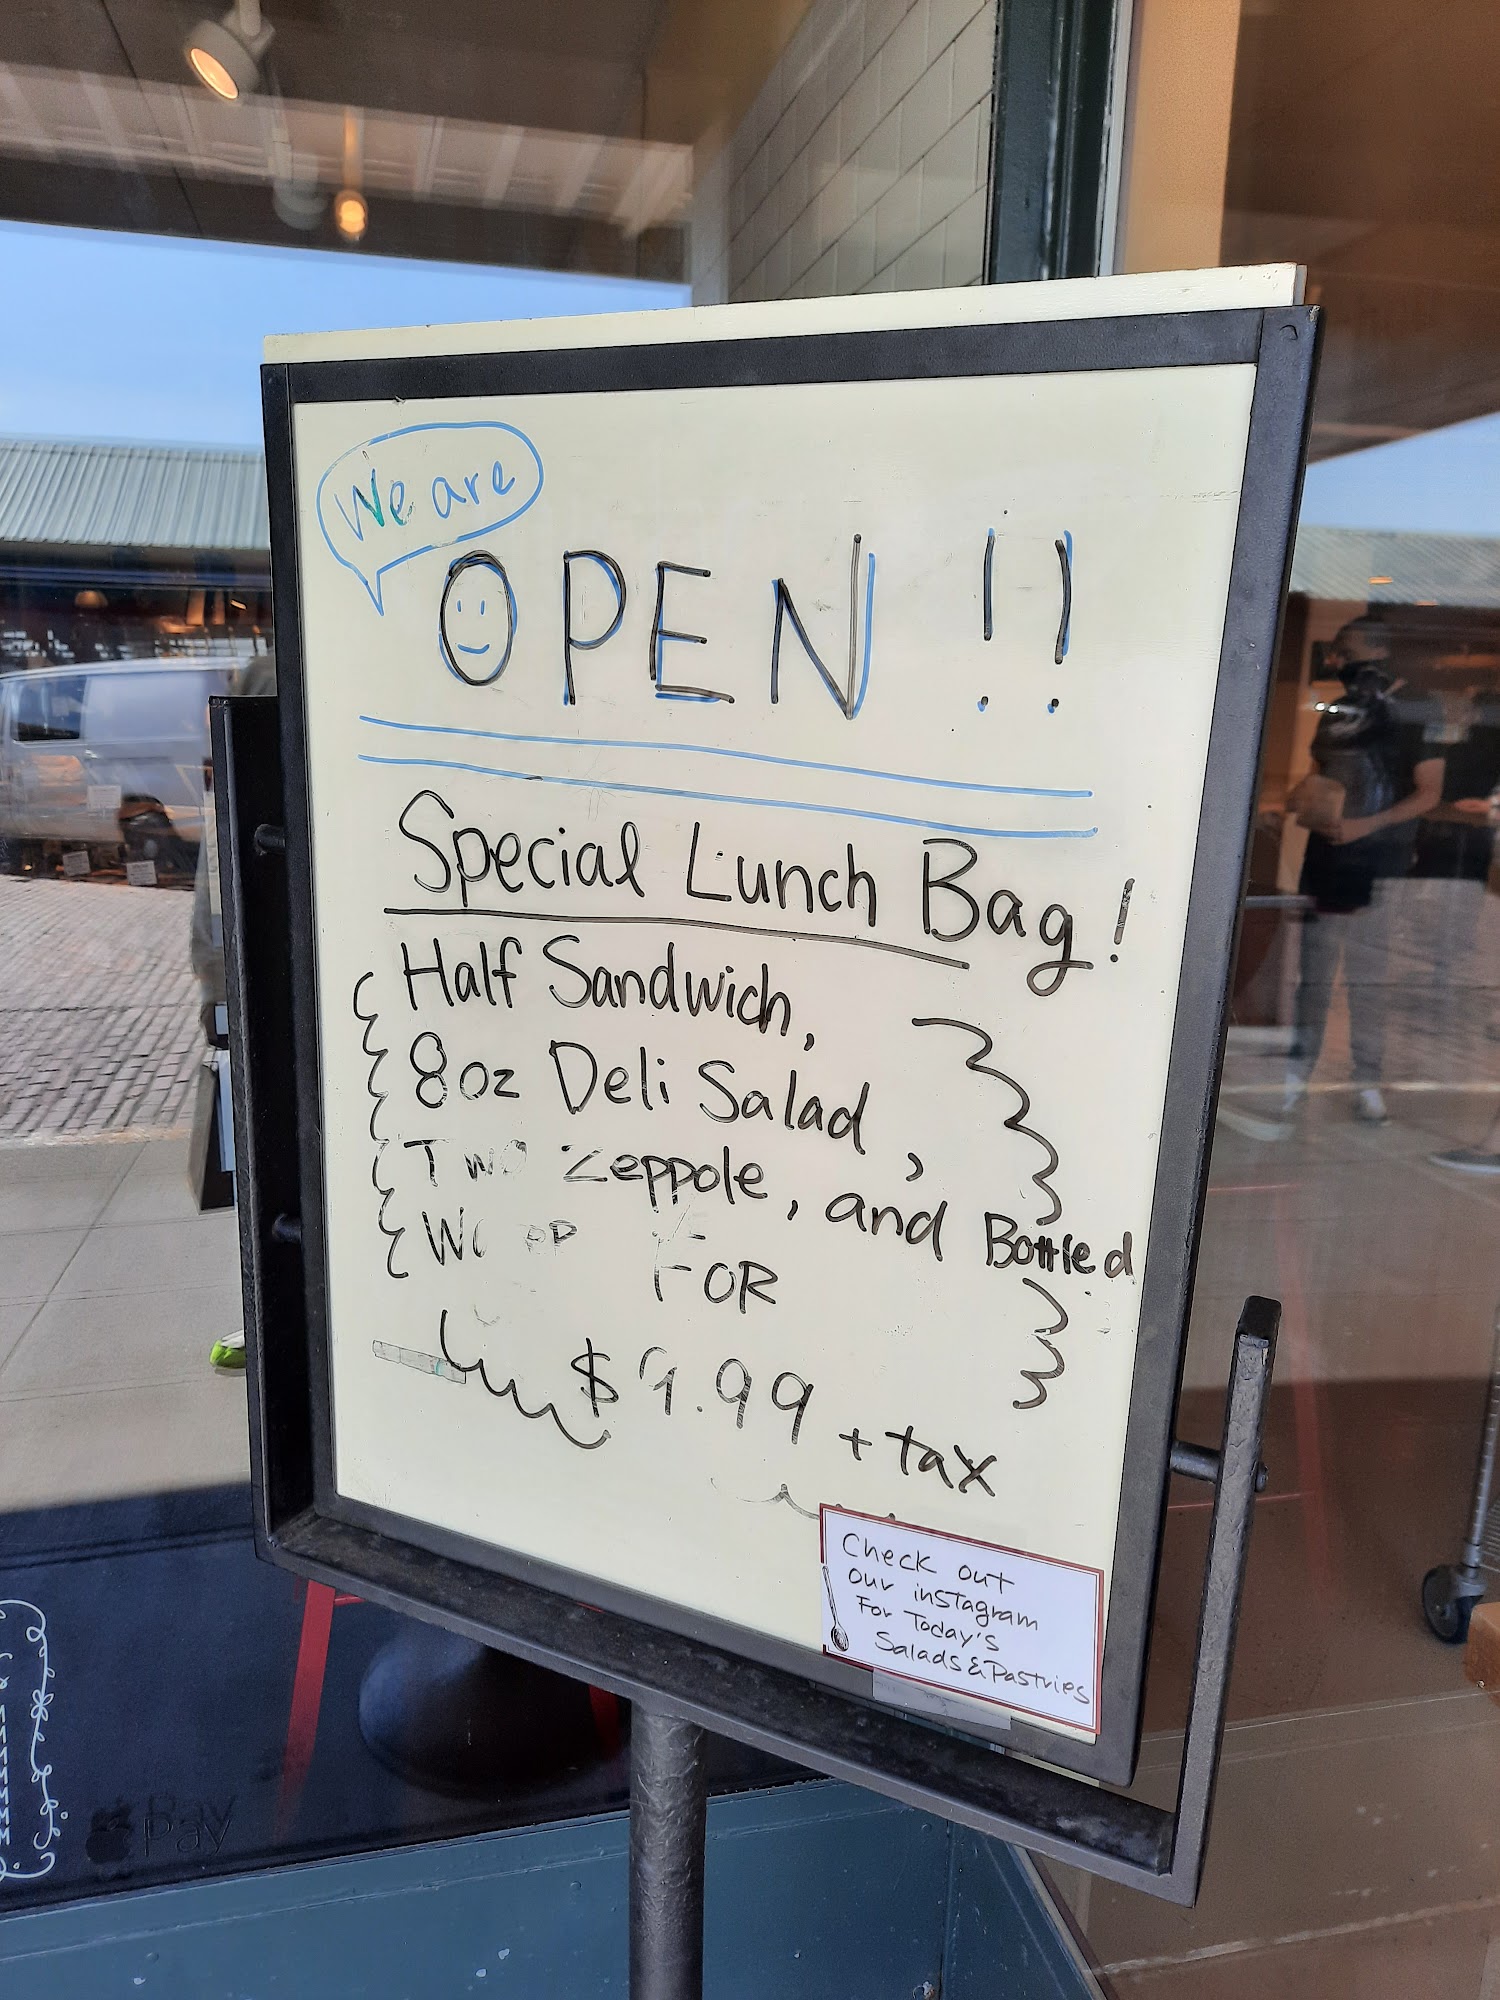 We are
OPEN !!
Special Lunch Bag!
Half Sandwich,
8oz Deli Salad,
Two Zeppole, and Bottled
FOR
.99 + tax
Check out
our instagram
For Today's
Salads & Pastries
Pay